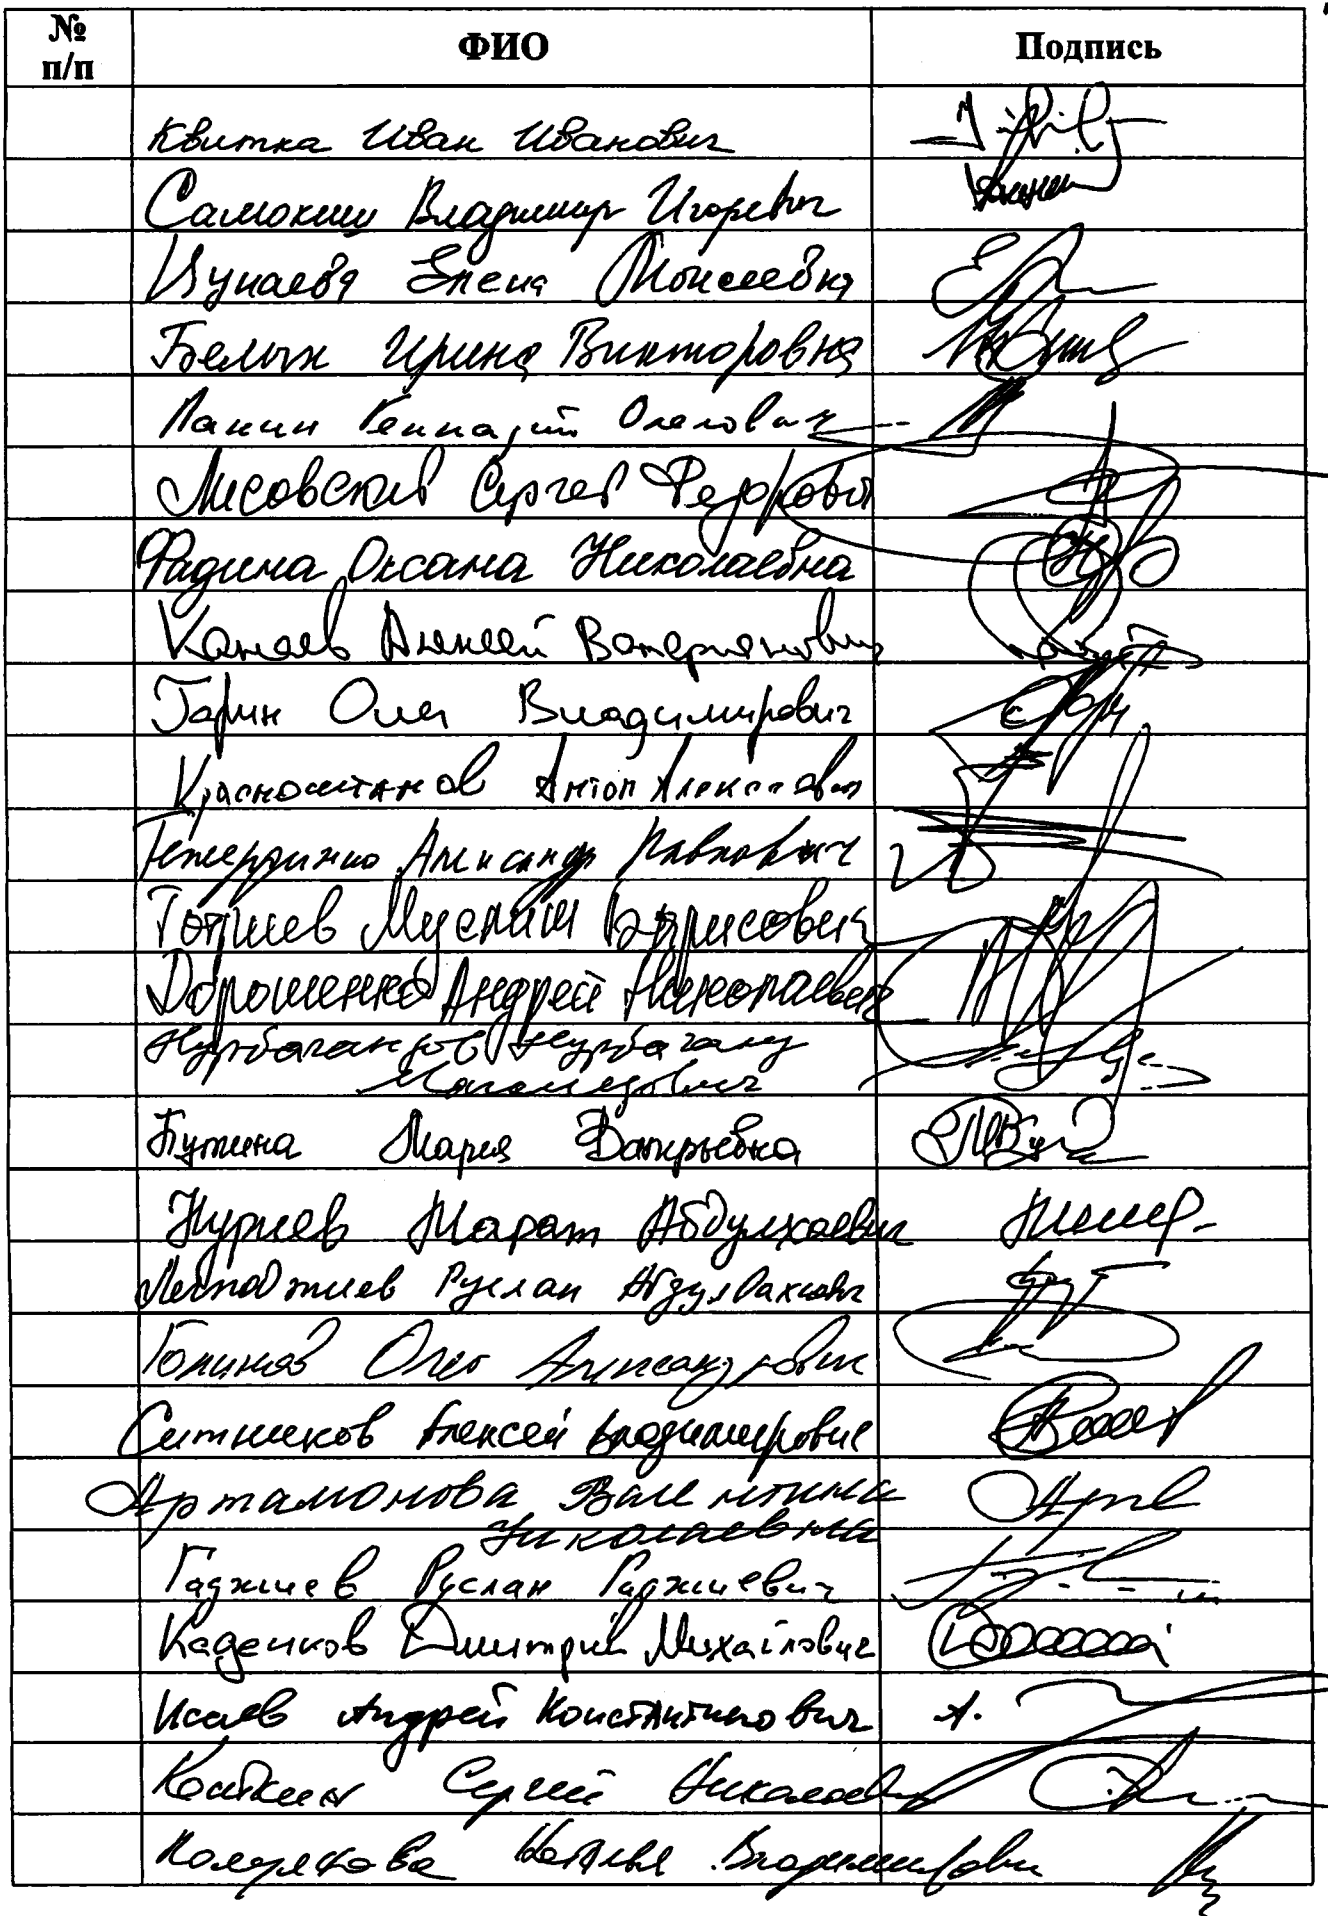 № п/п ФИО Подпись
Квитка Иван Иванович
Самокиш Владимир Игоревич
Цунаева Елена Моисеевна
Белых Ирина Викторовна
Панин Геннадий Олегович
Лисовский Сергей Федорович
Фадина Оксана Николаевна
Канаев Алексей Валерианович
Гарин Олег Владимирович
Красноштанов Антон Алексеевич
Тетердинко Александр Павлович
Топчиев Муслим Борисович
Дорошенко Андрей Николаевич
Нурбагандов Нурбаганд
Магомедович
Бутина Мария Валерьевна
Нуриев Марат Абдулхаевич
Лечхаджиев Руслан Абдулвахович
Голиков Олег Александрович
Ситников Алексей Владимирович
Артамонова Валентина
Николаевна
Гаджиев Руслан Гаджиевич
Каденков Дмитрий Михайлович
Исаев Андрей Константинович
Коткин Сергей Николаевич
Полуянова Наталья Владимировн